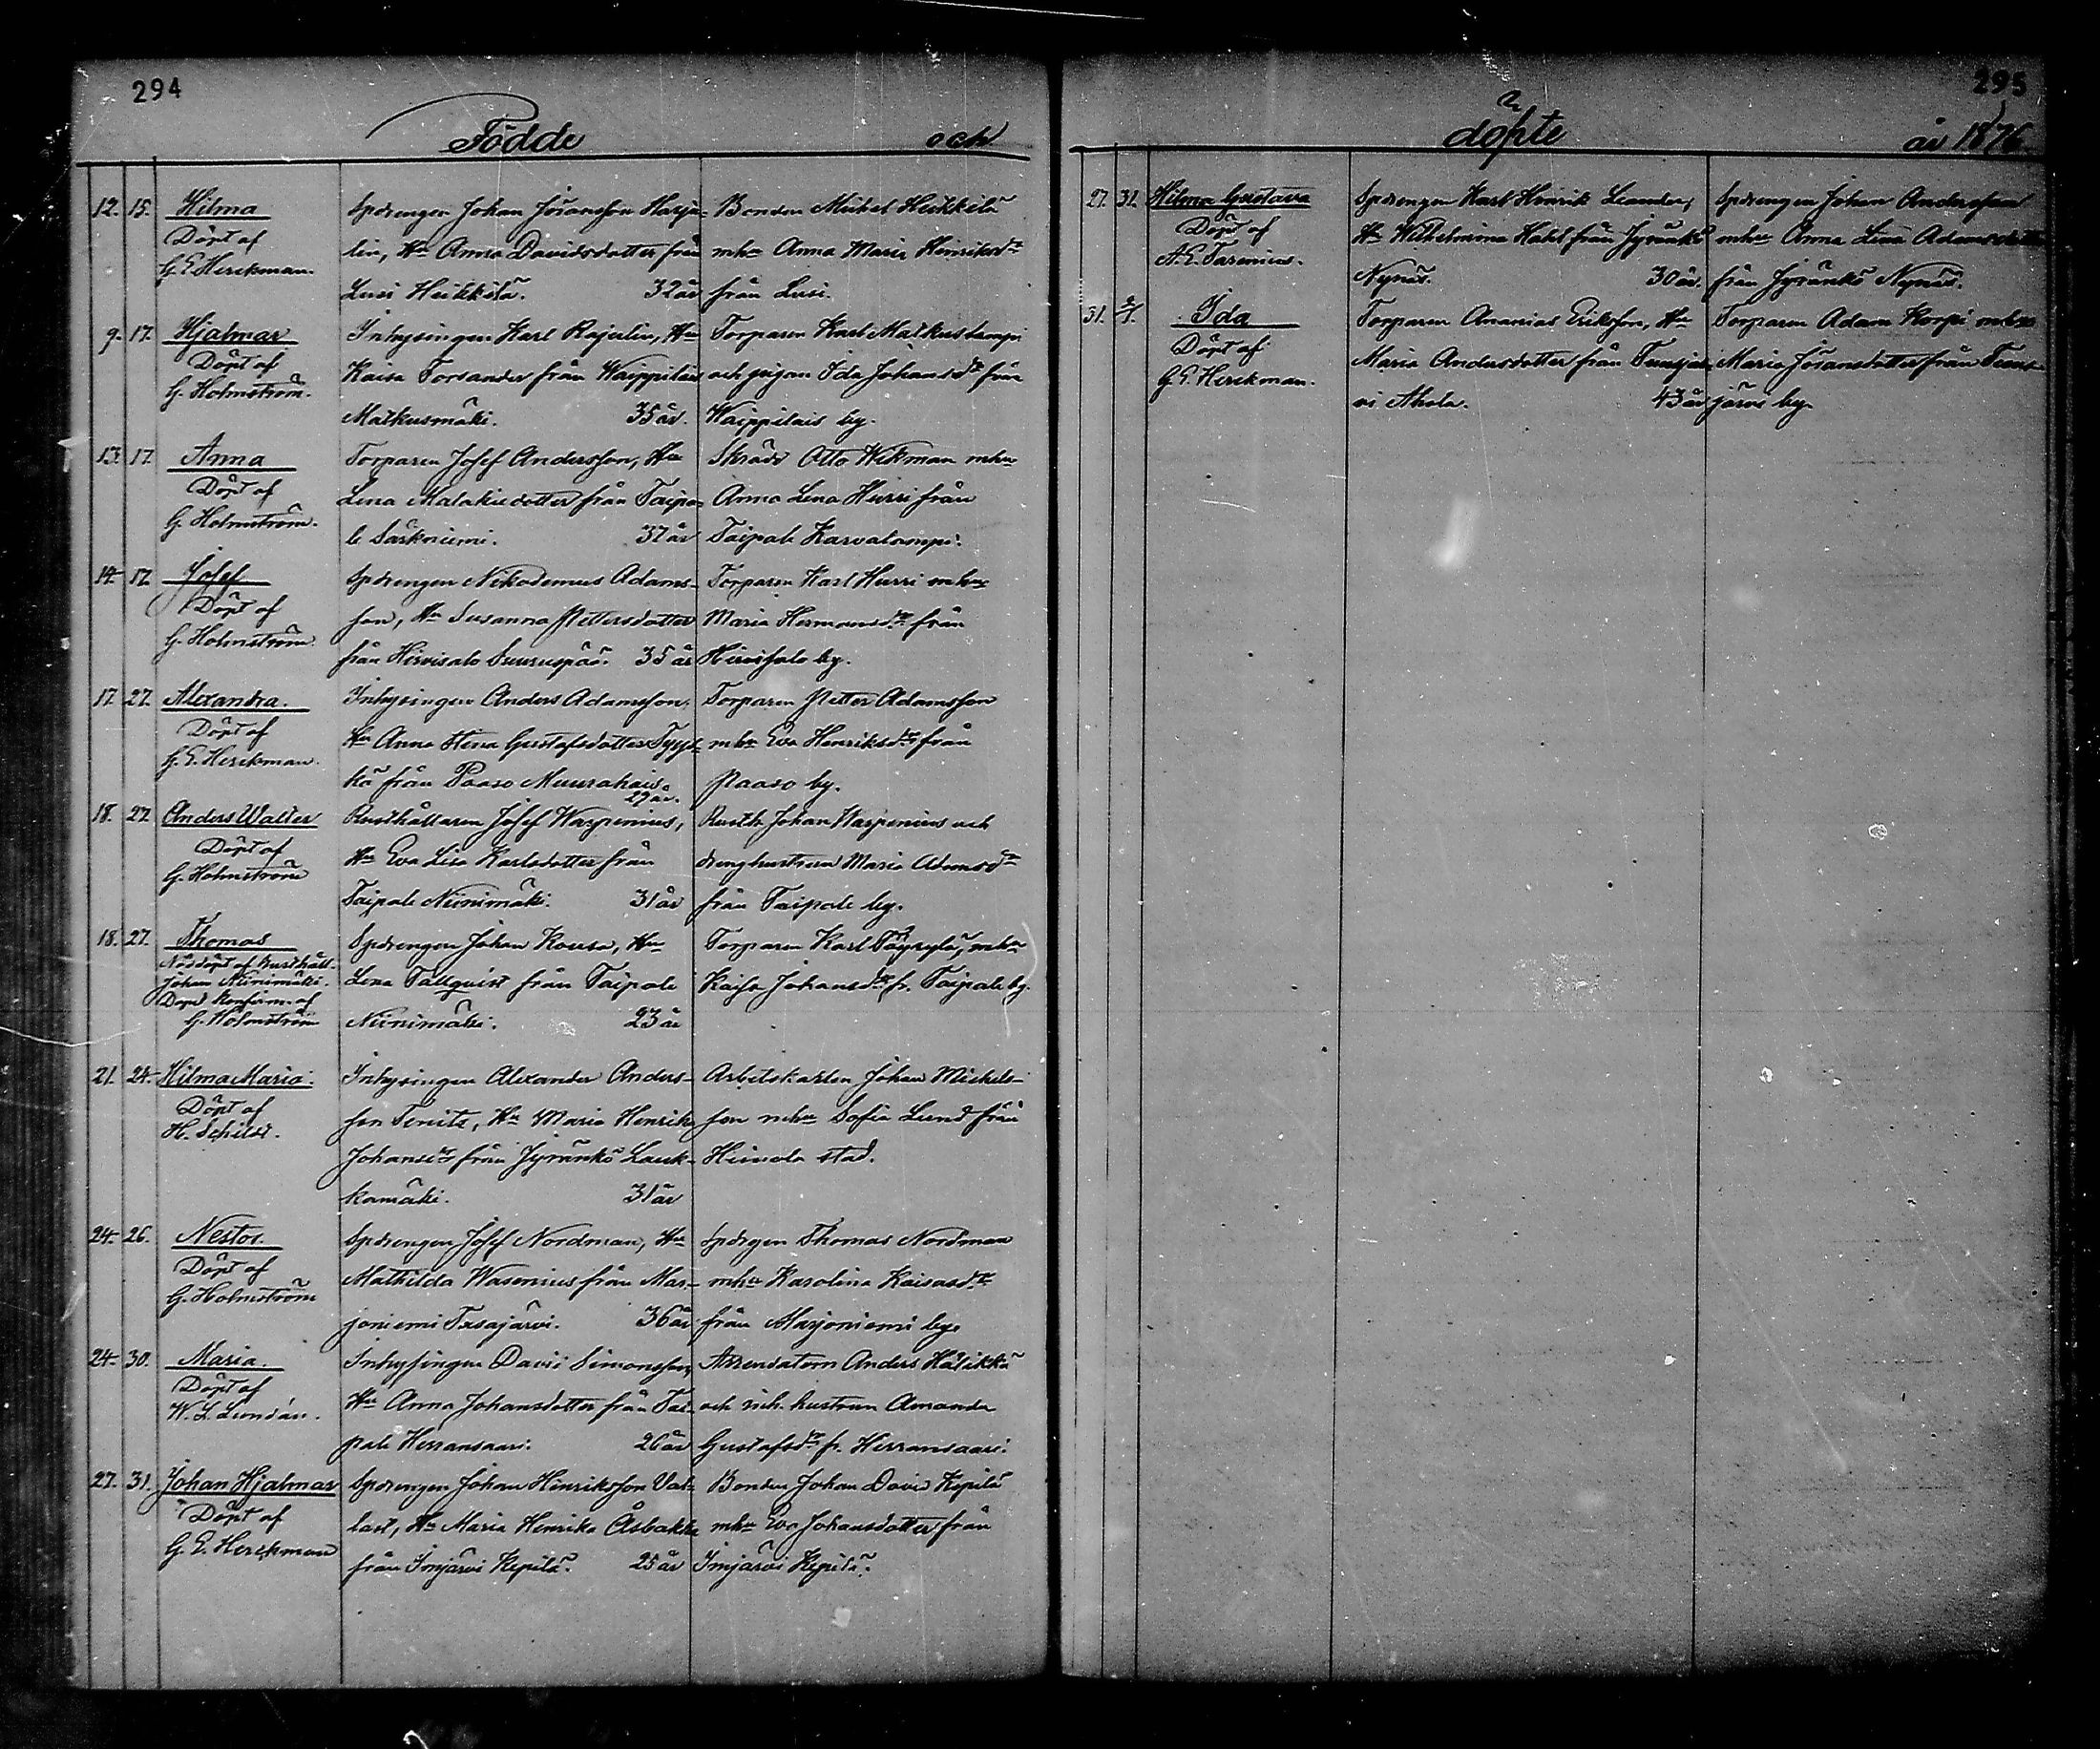 294
Födde och
12. 15. Hilma
Döpt af
G. E. Herckman.
Spdrengen Johan Jöransson Harju-
lin, Hu Anna Davidsdotter från
Lusi Heikkilä. 32 år
Bonden Mickel Heikkilä
mhu Anna Maria Henriksdr
från Lusi.
9. 17. Hjalmar
Döpt af
G. Holmström.
Inhysingen Karl Rajulin, Hu
Kaisa Forsander från Waippilais
Matkusmäki. 35 år.
Torparen Karl Matkuslampi
och pigan Ida Johansdr från
Waippilais by.
13. 17. Anna
Döpt af
G. Holmström.
Torparen Josef Andersson, Hu
Lena Malakiedotter från Taipa-
le Särkniemi. 37 år
Skrädd Otto Wikman mhu
Anna Lena Hurri från
Taipale Karvalampi.
14. 17. Josef
Döpt af
G. Holmström.
Spdrengen Nikodemus Adams-
son, Hu Susanna Pettersdotter
från Hirvisalo Suuruspää. 35 år
Torparen Karl Hurri mhu
Maria Hermansdr från
Hirvisalo by.
17. 27. Alexandra.
Döpt af
G. E. Herckman.
Inhysingen Anders Adamsson,
Hu Anna Stina Gustafsdotter
kä från Paaso Muurahais.
29 år.
Torparen Petter Adamsson
mhu Eva Henriksdr från
Paaso by.
18. 27. Anders Walter
Döpt af
G. Holmström
Rusthållaren Josef Warpenius,
Hu Eva Lisa Karlsdotter från
Taipale Niinimäki. 31 år
Rusth. Johan Warpenius och
drenghustrun Maria Adamsdr
från Taipale by.
18. 27. Thomas
Nöddöpt af Rusthåll.
Johan Niinimäki.
Dopet konfirm. af
G. Holmström
Spdrengen Johan Kousa, Hu
Lena Tallqvist från Taipale
Niinimäki. 23 år
Torparen Karl Töyrylä, mhu
Kaisa Johansdr fr. Taipale by.
21. 24. Hilma Maria.
Döpt af
H. Schildt.
Inhysingen Alexander Anders-
son Tenitz, Hu Maria Henrika
Johansdr från Jyränkö Lauk-
kamäki. 31 år
Arbetskarlen Johan Mickels-
son mhu Sofia Lund från
Heinola stad.
24. 26. Nestor
Döpt af
G. Holmström
Spdrengen Josef Nordman, Hu
Mathilda Wasenius från Mar-
joniemi Tasajärvi. 36 år
Spdrgen Thomas Nordman
mhu Karolina Kaisasdr
från Marjoniemi by.
24. 30. Maria.
Döpt af
W. L. Lundán.
Inhysingen David Simonsson,
Hu Anna Johansdotter från Tai-
pale Herransaari. 26 år
Arrendatorn Anders Hälikkä
och inh. hustrun Amanda
Gustafsdr fr. Herransaari.
27. 31. Johan Hjalmar
Döpt af
G. E. Herckman
Spdrengen Johan Hinriksson Val-
last, Hu Maria Henrika Åsbakka
från Imjärvi Kepilä. 25 år
Bonden Johan David Kepilä
mhu Eva Johansdotter från
Imjärvi Kepilä.
295
döpte år 1876
27. 31. Hilma Gustava
Döpt af
A. E. Fareniens.
Spdrengen Karl Hinrik Leander,
Hu Wilhelmina Hahl från Jyränkö
Nynäs. 30 år.
Spdrengen Johan Andersson
mhu Anna Lena Adamsdotter
från Jyränkö Nynäs.
31. Ida
Döpt af
G. E. Herckman.
Torparen Ananias Eriksson, Hu
Maria Andersdotter från Tuusjär-
vi Ahola. 43 år
Torparen Adam Korpi mhu
Maria Jöransdotter från Tuus-
järvi by.